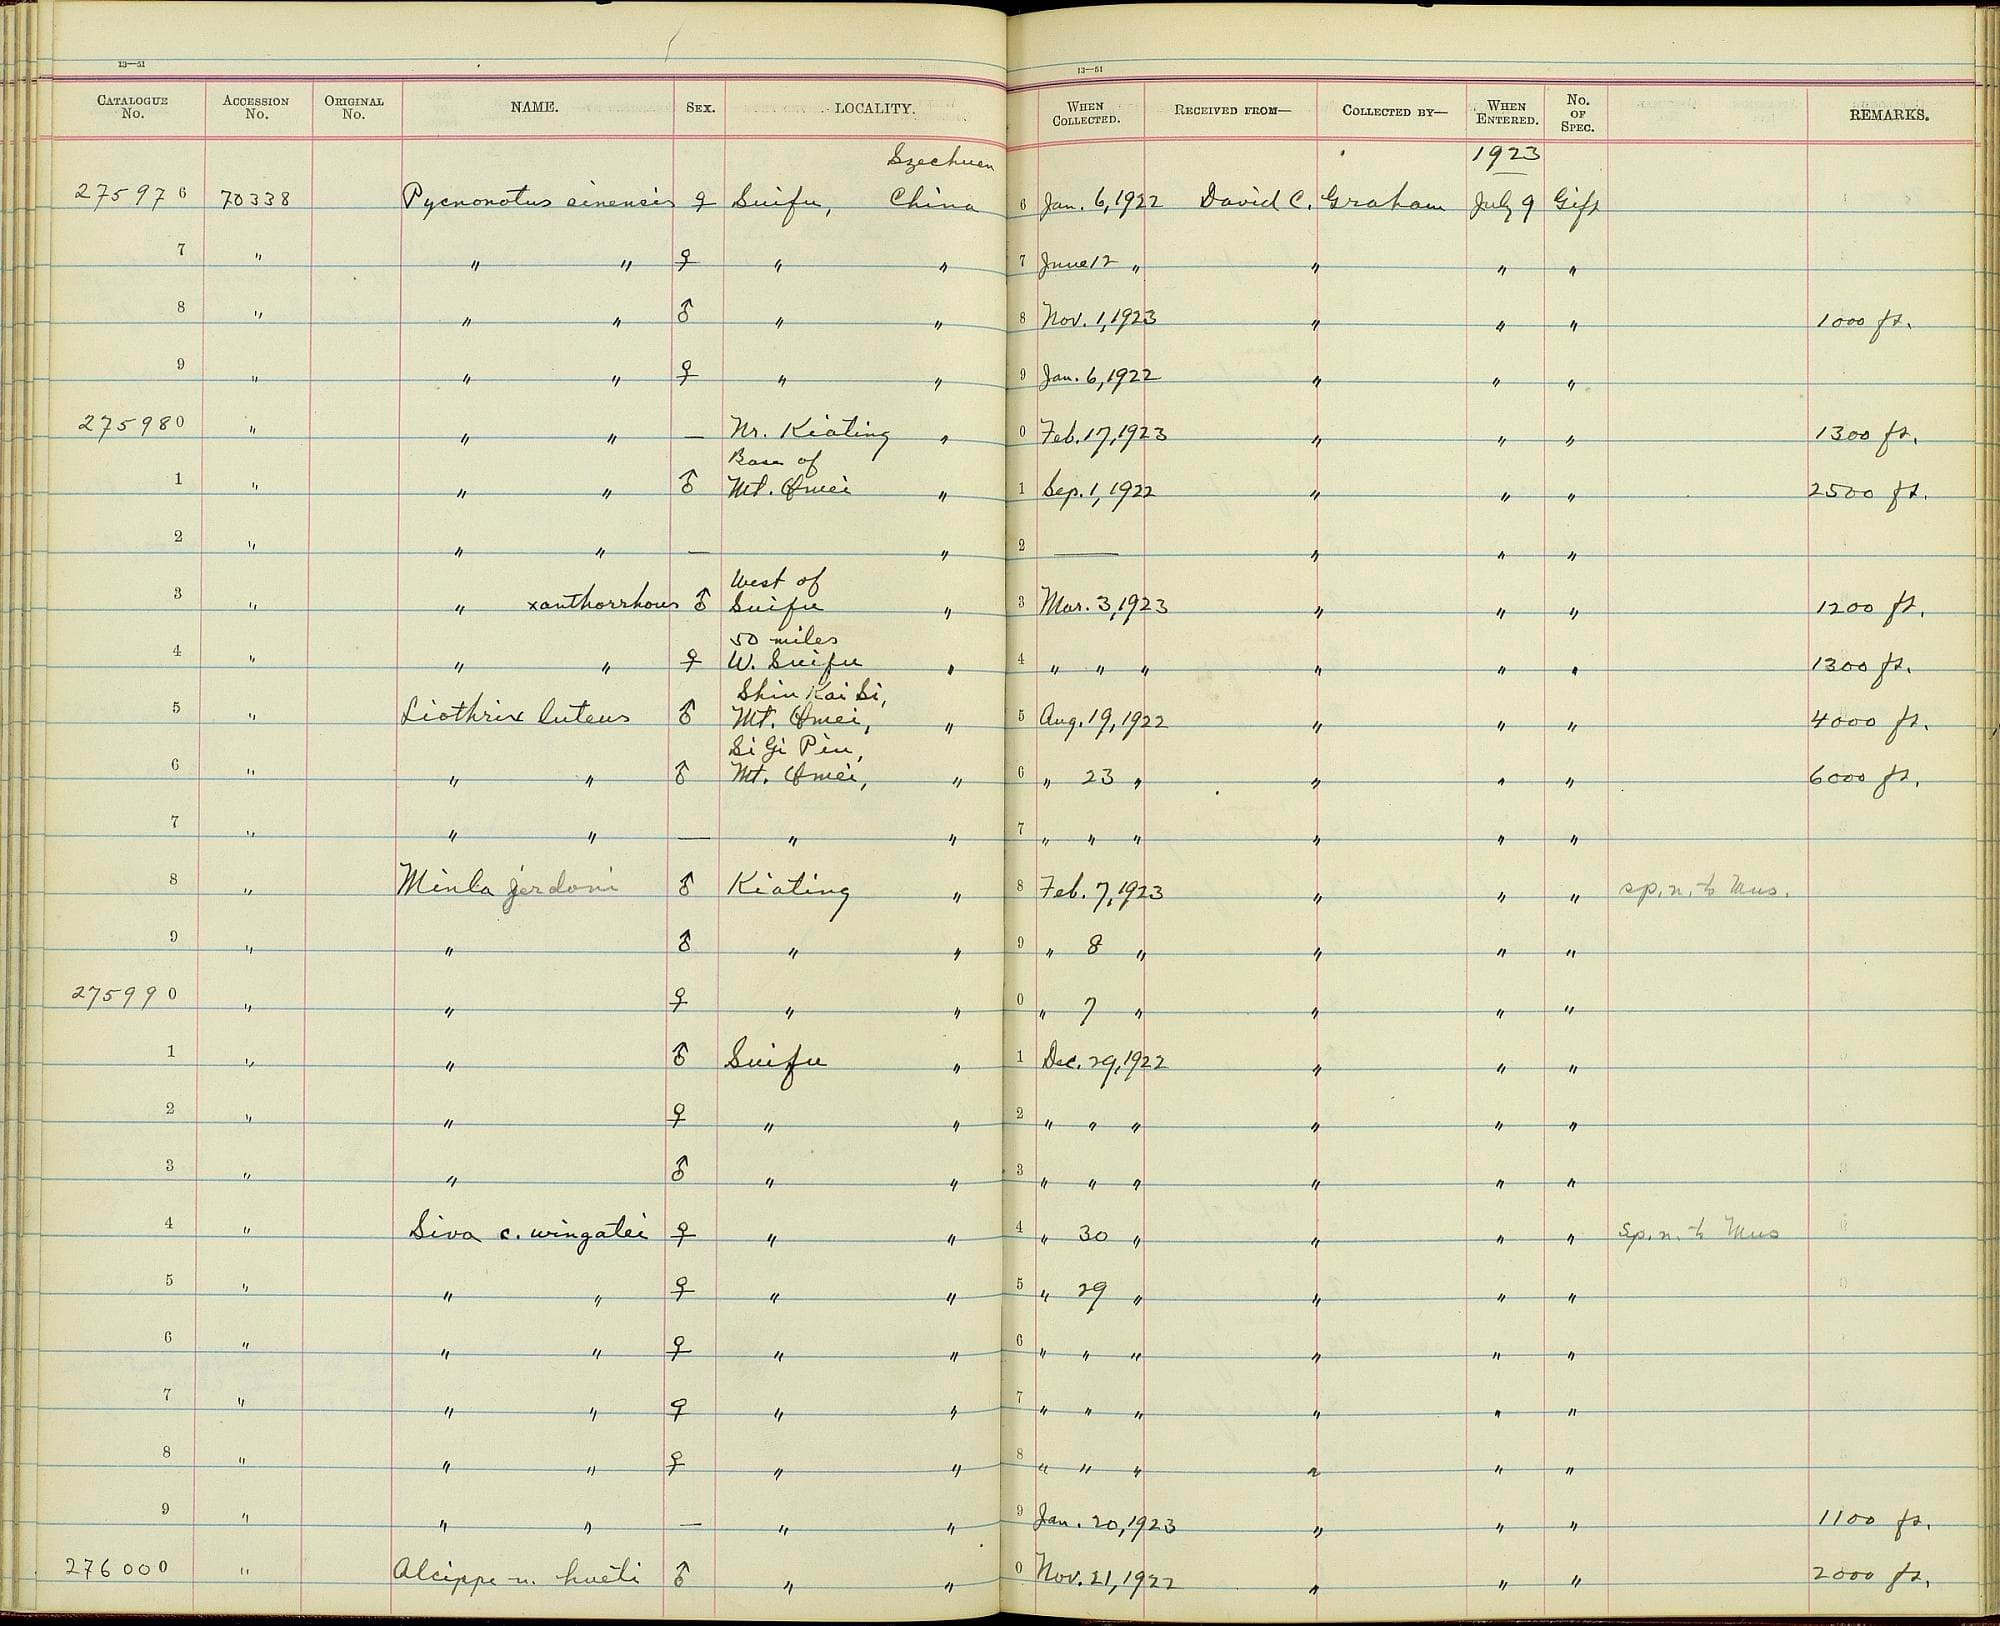 13—51 13—51
CATALOGUE No. ACCESSION No. ORIGINAL No. NAME. SEX. LOCALITY. WHEN COLLECTED. RECEIVED FROM— COLLECTED BY— WHEN ENTERED. No. OF SPEC. REMARKS.
Szechuen 1923
275976 70338 Pycnonotus sinensis ♀ Suifu, China 6 Jan. 6, 1922 David C. Graham July 9 Gift
7 " " " ♀ " " 7 June 12 " " " "
8 " " " ♂ " " 8 Nov. 1, 1923 " " " 1000 ft.
9 " " " ♀ " " 9 Jan. 6, 1922 " " "
275980 " " " — Nr. Kiating " 0 Feb. 17, 1923 " " " 1300 ft.
Base of
1 " " " ♂ Mt. Omei " 1 Sep. 1, 1922 " " " 2500 ft.
2 " " " — " 2 — " " "
West of
3 " " xanthorrhous ♂ Suifu " 3 Mar. 3, 1923 " " " 1200 ft.
50 miles
4 " " " ♀ W. Suifu " 4 " " " " " " 1300 ft.
Shin Kai Si,
5 " Liothrix luteus ♂ Mt. Omei, " 5 Aug. 19, 1922 " " " 4000 ft.
Si Gi Pin,
6 " " " ♂ Mt. Omei, " 6 " 23 " " " " 6000 ft.
7 " " " — " " 7 " " " " " "
8 " Minla jerdoni ♂ Kiating " 8 Feb. 7, 1923 " " " sp. n. to Mus.
9 " " ♂ " " 9 " 8 " " " "
275990 " " ♀ " " 0 " 7 " " " "
1 " " ♂ Suifu " 1 Dec. 29, 1922 " " "
2 " " ♀ " " 2 " " " " " "
3 " " ♂ " " 3 " " " " " "
4 " Siva c. wingatei ♀ " " 4 " 30 " " " " sp. n. to Mus
5 " " " ♀ " " 5 " 29 " " " "
6 " " " ♀ " " 6 " " " " " "
7 " " " ♀ " " 7 " " " " " "
8 " " " ♀ " " 8 " " " " " "
9 " " " — " " 9 Jan. 20, 1923 " " " 1100 ft.
276000 " Alcippe n. hueti ♂ " " 0 Nov. 21, 1922 " " " 2000 ft.